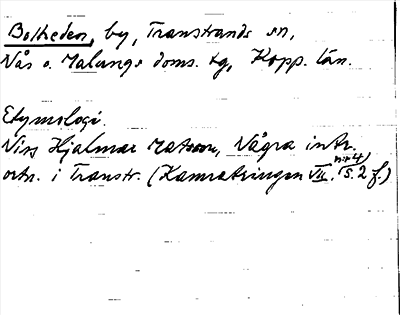 Bolheden, by, Transtrands sn,
Nås o. Malungs doms. tg, Kopp. län.
Etymologi.
Nils Hjalmar Matsson, Några intr.
ortn. i Transtr. (Kamratringen VII. nr 4, s. 2 f.)